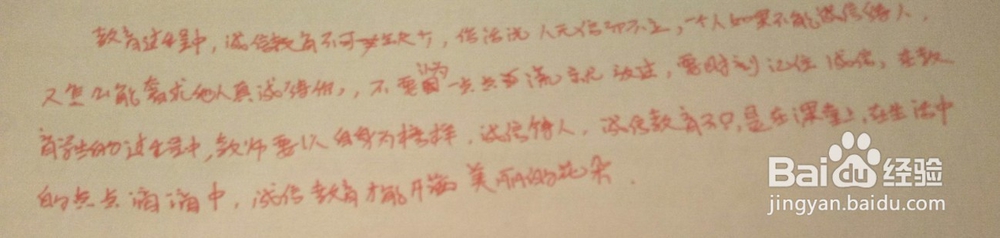 教育过程中,诚信教育不可缺少,俗话说人无信而不立,一个人如果不能诚信待人,
又怎么能要求他人真诚待他,不要因一点点
要时刻记住诚信,在教
育学生的过程中,教师要以自身为榜样,诚信待人,诚信教育不只是在课堂上,在生活中
的点点滴滴中,诚信教育才能开满美丽的花朵.
Bai du 经验
jingyan.baidu.com